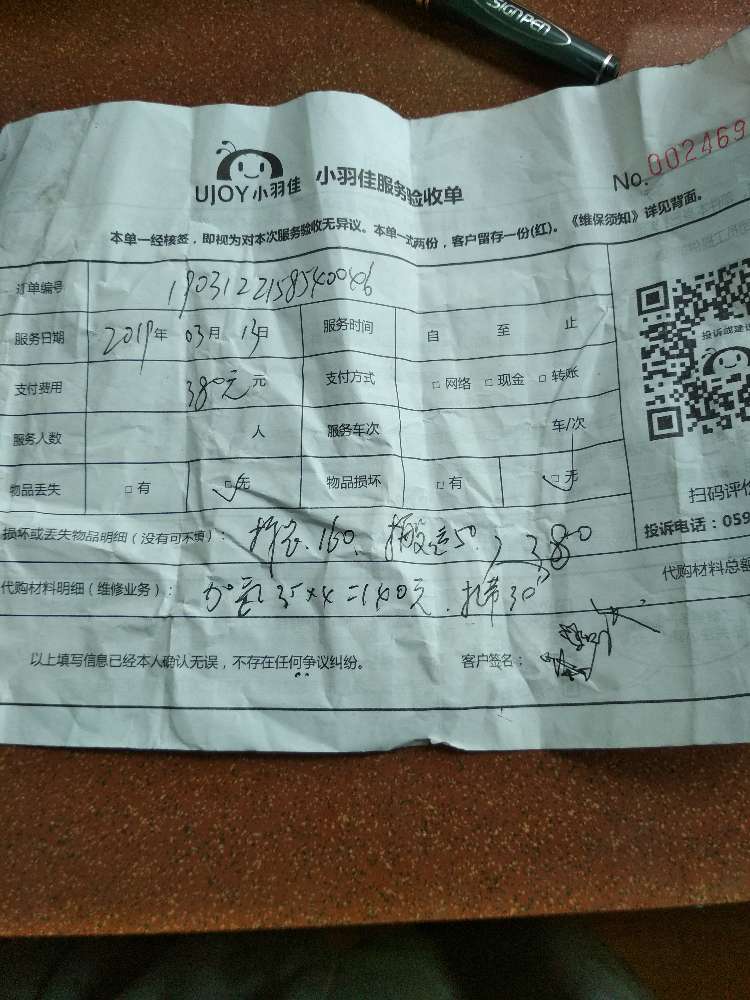 SIGNPEN
UJOY小羽佳 小羽佳服务验收单
No.002469
本单一经核签，即视为对本次服务验收无异议。本单一式两份，客户留存一份(红)。《维保须知》详见背面。
订单编号 19031221585400406
服务日期 2019年 03月 13日 服务时间 自 至 止
投诉或建议
支付费用 380元 元 支付方式 □网络 □现金 □转账
服务人数 人 服务车次 车/次
物品丢失 □有 □无 物品损坏 □有 □无
扫码评价
投诉电话：059
损坏或丢失物品明细（没有可不填）： 拆装160、搬运50 380
代购材料明细（维修业务）： 加氟35×4=140元、 30
代购材料总额
以上填写信息已经本人确认无误，不存在任何争议纠纷。 客户签名：